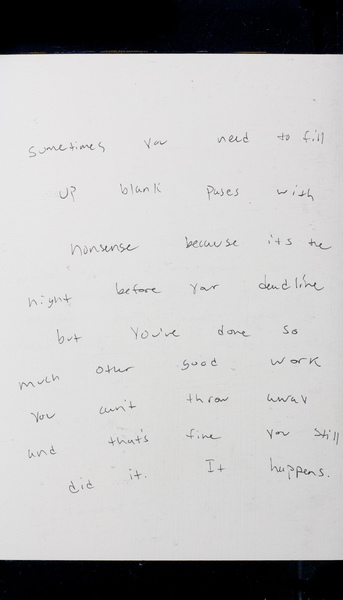 sometimes you need to fill
up blank pages with
nonsense because its the
night before your deadline
but you've done so
much other good work
you can't throw away
and that's fine you still
did it. It happens.